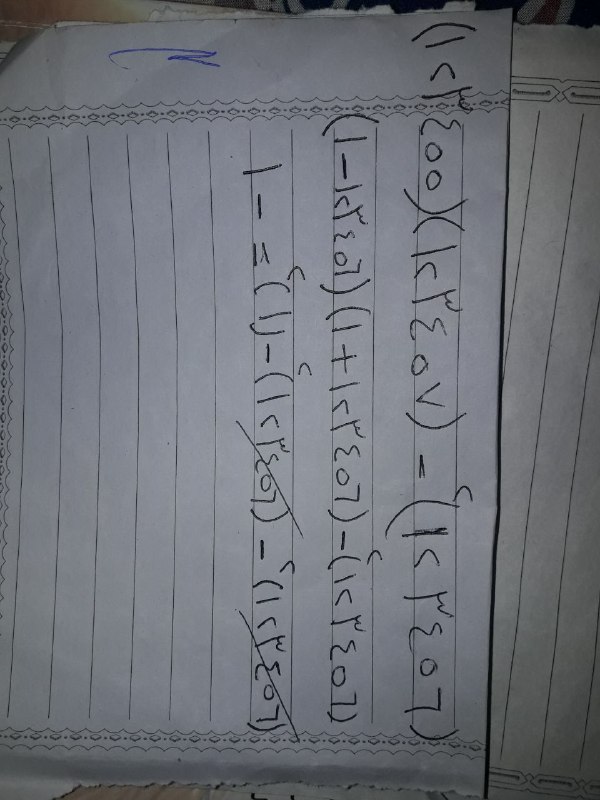 (١٢٣٤٥٦)^٢ - (١٢٣٤٥٧)(١٢٣٤٥٥)
(١٢٣٤٥٦)^٢ - (١٢٣٤٥٦ + ١)(١٢٣٤٥٦ - ١)
(١٢٣٤٥٦)^٢ - (١٢٣٤٥٦)^٢ - (١)^٢ = - ١